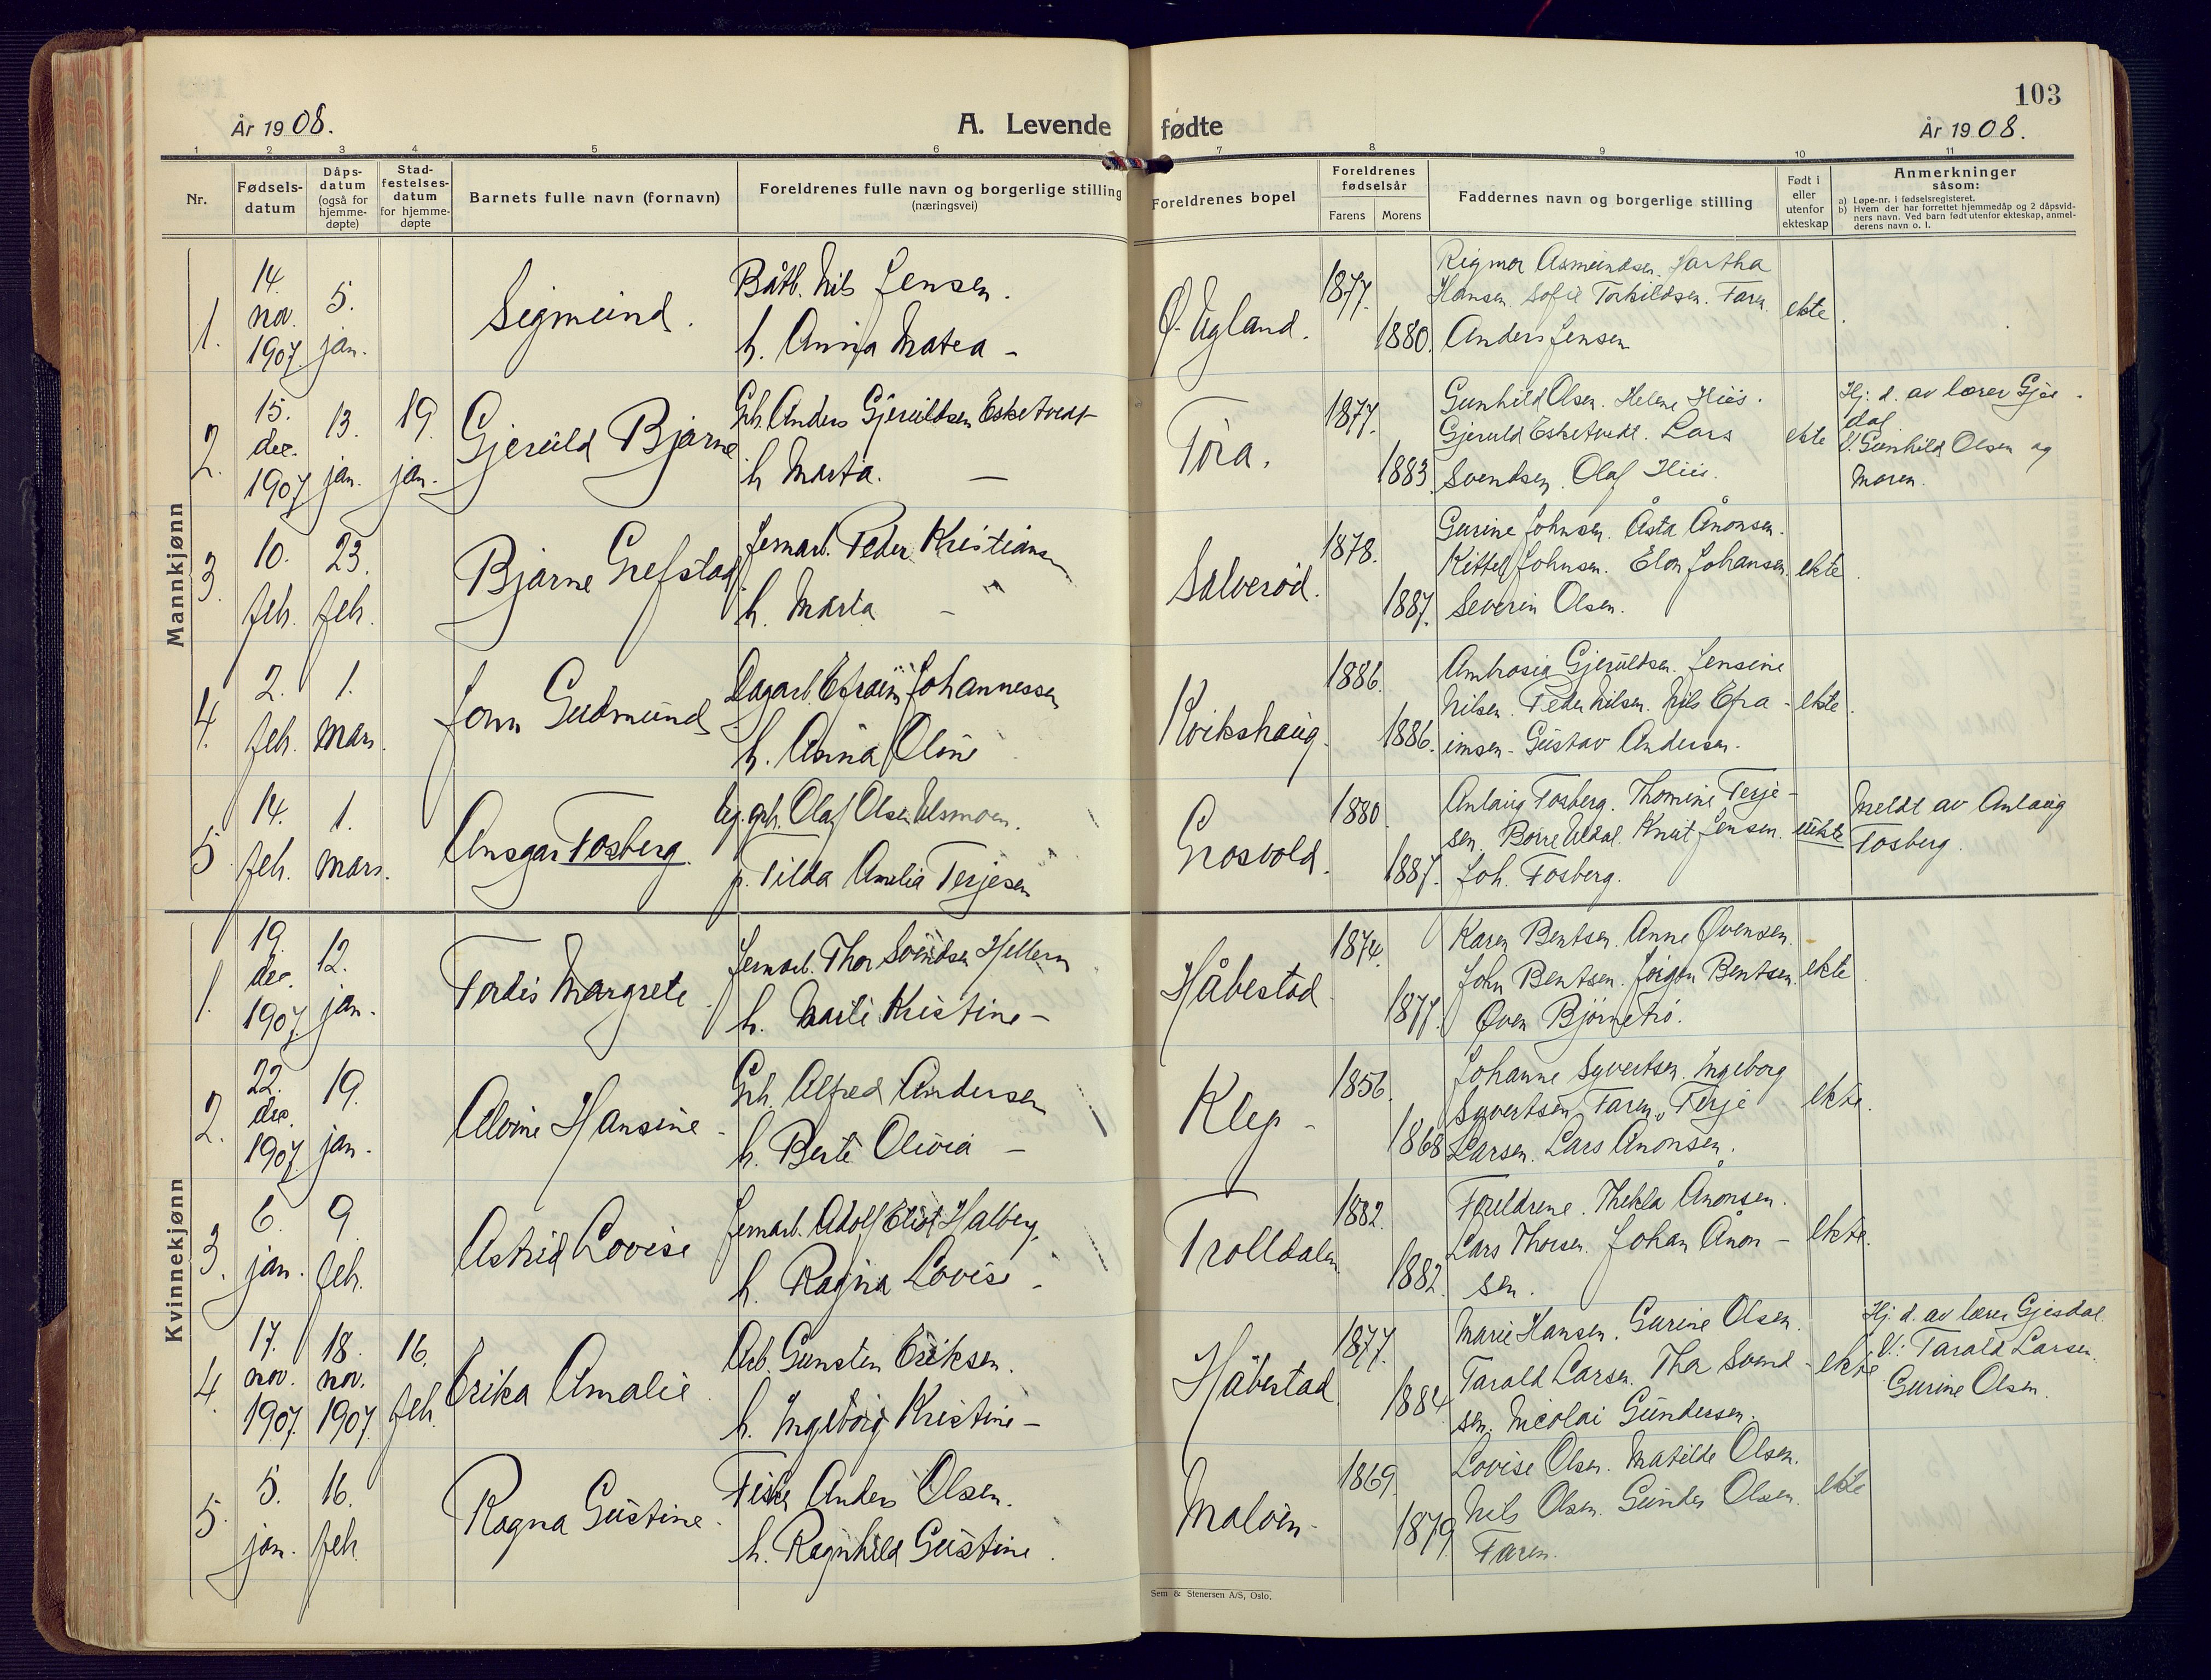 103
År 1908.
A. Levende fødte
År 1908.
1 2 3 4 5 6 7 8 9 10 11
Nr.
Fødsels-
datum
Dåps-
datum
(også for
hjemme-
døpte)
Stad-
festelses-
datum
for hjemme-
døpte
Barnets fulle navn (fornavn)
Foreldrenes fulle navn og borgerlige stilling
(næringsvei)
Foreldrenes bopel
Foreldrenes
fødselsår
Farens Morens
Faddernes navn og borgerlige stilling
Født i
eller
utenfor
ekteskap
Anmerkninger
såsom:
a) Løpe-nr. i fødselsregisteret.
b) Hvem der har forrettet hjemmedåp og 2 dåpsvid-
ners navn. Ved barn født utenfor ekteskap, anmel-
derens navn o. l.
Mannkjønn
1.
14.
nov.
1907
5.
jan.
Sigmund.
Båtb. Nils Jensen.
h. Anna Matea -
Ø. Ugland.
1877.
1880.
Rigmor Asmundsen. Hartha
Hansen. Sofie Torkildsen. Faren.
Anders Jensen
ekte.
2.
15.
des.
1907
13.
jan.
19.
jan.
Gjeruld Bjarne
Grb. Anders Gjeruldsen Eskedvedt
h Marta. -
Tøra.
1877.
1883.
Gunhild Olsen. Helene Hiis.
Gjeruld Eskedvedt. Lars
Svendsen. Olaf Hiis.
ekte
Hj. d. av lærer Gjes-
dal
V. Gunhild Olsen og
Moren.
3.
10.
feb.
23.
feb.
Bjarne Grefstad
Jernarb. Peder Kristiansen
h. Marta - "
Salverød.
1878.
1887.
Gurine Johnsen. Åsta Ånonsen.
Kittel Johnsen. Elon Johansen.
Severin Olsen.
ekte.
4.
2.
feb.
1.
mars.
Jonn Gudmund
Dagarb. Efraim Johannessen
h. Anna Oline
Kvikshaug.
1886.
1886.
Ambrosia Gjeruldsen. Jensine
Nilsen. Peder Nilsen. Nils Efra-
imsen. Gustav Andersen.
ekte.
5.
14.
feb.
1.
mars.
Ansgar Fosberg.
Ug. grb. Olaf Olsen Ulsmoen.
p. Tilda Amalia Terjesen
Grosvold.
1880
1887.
Anlaug Fosberg. Thomine Terje-
sen. Børre Uldal. Knut Jensen.
Joh. Fosberg.
uekte
Meldt av Anlaug
Fosberg.
Kvinnekjønn
1.
19.
des.
1907
12.
jan.
Tordis Margrete.
Jernarb. Thor Svendsen Hellern
h. Marte Kristine -
Håbestad
1874.
1877.
Karen Bentsen. Anne Øvensen.
John Bentsen. Jørgen Bentsen.
Øven Bjørnetrø.
ekte.
2.
22.
des.
1907
19.
jan.
Alvine Hansine -
Grb. Alfred Andersen
h. Berte Olivia -
Klep -
1856.
1868
Johanne Syvertsen. Ingeborg
Syvertsen, Faren, Terje
Larsen. Lars Ånonsen.
ekte.
3.
6.
jan.
9.
feb.
Astrid Lovise
Jernarb. Adolf Eliot Halberg.
h. Ragna Lovise -
Trolldalen
1882.
1882.
Foreldrene. Thekla Ånonsen.
Lars Thorsen. Johan Ånon-
sen.
ekte.
4.
17.
nov.
1907.
18.
nov.
1907.
16.
feb.
Erika Amalie.
Arb. Gunsten Eriksen.
h. Ingeborg Kristine -
Håbestad.
1877.
1884
Marie Hansen. Gurine Olsen.
Tarald Larsen. Thor Svend-
sen. Nicolai Gundersen.
ekte
Hj. d. av lærer Gjesdal.
V.: Tarald Larsen.
Gurine Olsen.
5.
5.
jan.
16.
feb.
Ragna Gustine.
Fisker Anders Olsen.
h. Ragnhild Gustine.
Maløen -
1869.
1879
Lovise Olsen. Matilde Olsen.
Nils Olsen. Gunder Olsen.
Faren.
ekte
Sem & Stenersen A/S, Oslo.